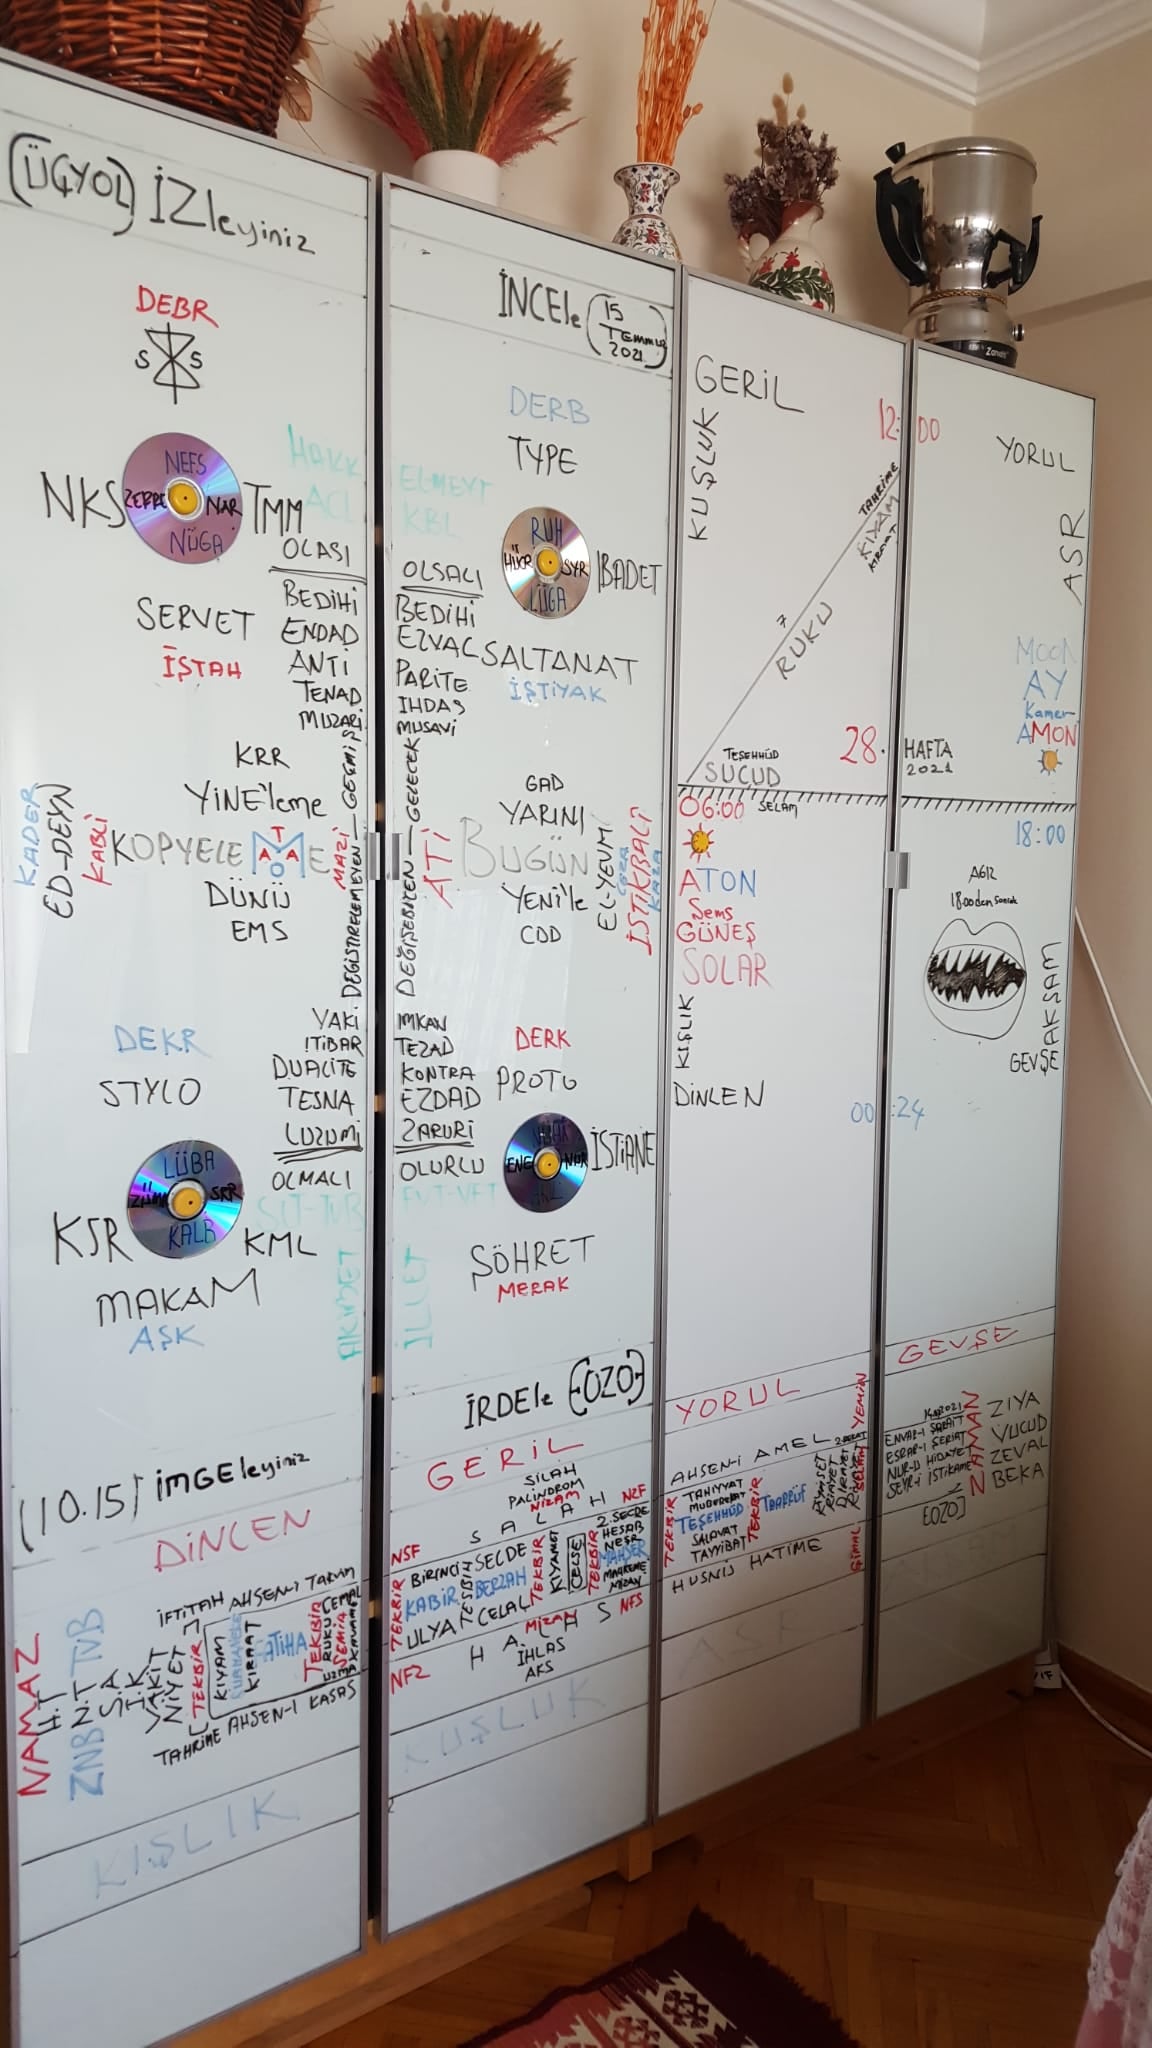 (ÜÇYOL) İZleyiniz
DEBR
S S
NEFS
ZERRE NAR
NÜGA
NKS TMM
HAKK
ACL
OLASI
SERVET
İŞTAH
BEDİHİ
ENDAD
ANTİ
TENAD
MUZARİ
KRR
YİNE'leme
KOPYELE ME
T
A A
O
DÜNÜ
EMS
KADER
ED-DEYN
KABLİ
MAZİ
DEĞİŞTİRELEMEYEN — GEÇMİŞ
DEKR
STYLO
VAKİ
İTİBAR
DUALİTE
TESNA
LUZUMİ
OLMALI
LÜBA
SRR
KALB
KSR KML
MAKAM
AŞK
AKIBET
(10.15) İMGEleyiniz
DİNLEN
İFTİTAH AHSEN-İ TAKVİM
NAMAZ
H.T
ZNB N.T TVB
S.A
İ.K
VAKİT
NİYET
TEKBİR
KIYAM
SÜBHANEKE
KIRAAT
FATİHA
TEKBİR
SEMİA
RUKU CEMAL
UZMA KAVAME
TAHRİME AHSEN-İ KASAS
KIŞLIK
İNCEle (15 TEMMUZ 2021)
DERB
TYPE
ELMEYT
KBL
RUH
SYR
LÜGA
İBADET
OLSACI
BEDİHİ
EZVAC
PARİTE
IHDAS
MUSAVİ
SALTANAT
İŞTİYAK
GAD
YARINI
BUGÜN
YENİ'le
COD
DEĞİŞEBİLEN — GELECEK
ATİ
EL-YEVM
CEZA
İSTİKBALİ
KAZA
IMKAN
TEZAD
KONTRA
EZDAD
ZARURİ
OLURLU
DERK
PROTO
ENE NUR
İSTİANE
İLLET
ŞÖHRET
MERAK
İRDEle (OZO)
GERİL
SİLAH
PALİNDROM
NİZAM
S A L A H
NSF NZF
TEKBİR
BİRİNCİ SECDE
KABİR TESBİH BERZAH
ULYA CELAL
TEKBİR
KIYAMET
CELSE
TEKBİR
2.SECDE
HESAB
NEŞR
MAHŞER
MAHKEME
MİZAN
MİZAN
H A L H S
NFZ NFS
İHLAS
AKS
KUŞLUK
GERİL
KUŞLUK
12:00
TAHRİME
KIYAM
KIRAAT
7
RUKU
TEŞEHHÜD
SUCUD
28. HAFTA
2021
06:00 SELAM
ATON
Şems
GÜNEŞ
SOLAR
KIŞLIK
DİNLEN
00:24
YORUL
AHSEN-İ AMEL
YEMİN
TEKBİR
TAHIYYAT
MUBEREKAT
TEŞEHHÜD
SALAVAT
TAYYİBAT
TEKBİR
TEARRÜF
RİAYET
DİRAYET
SELAM
ŞİMAL
HUSNÜ HATİME
ASR
YORUL
ASR
MOON
AY
Kamer
AMON
18:00
AĞIZ
18:00den sonra
AKŞAM
GEVŞE
GEVŞE
ENVAR-I ŞARAİT
ESRAR-I ŞERİAT
NUR-U HİDAYET
SEYR-İ İSTİKAMET
ZAMAN
ZİYA
VUCUD
ZEVAL
BEKA
[OZO]